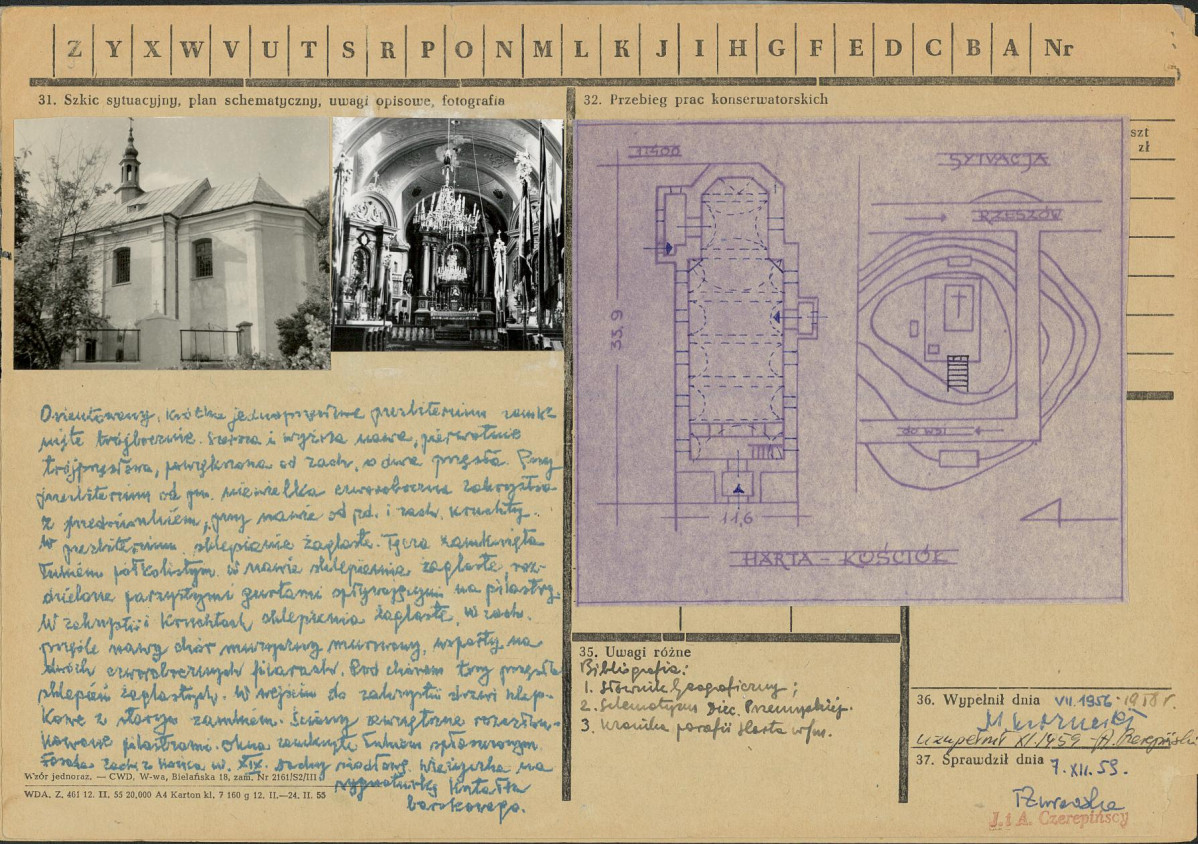 Z Y X W V U T S R P O N M L K J I H G F E D C B A Nr
31. Szkic sytuacyjny, plan schematyczny, uwagi opisowe, fotografia
32. Przebieg prac konserwatorskich
szt
zł
1:500
SYTUACJA
RZESZÓW
35,9
do wsi
11,6
HARTA – KOŚCIÓŁ
Orientowany, krótkie jednoprzęsłowe prezbiterium zamk-
nięte trójbocznie. Szersza i wyższa nawa, pierwotnie
trójprzęsłowa, powiększona od zach. o dwa przęsła. Przy
prezbiterium od pn. niewielka czworoboczna zakrystia
z przedsionkiem, przy nawie od pd. i zach. kruchty.
W prezbiterium sklepienie żaglaste. Tęcza zamknięta
łukiem półkolistym. W nawie sklepienia żaglaste roz-
dzielone parzystymi gurtami spływającymi na pilastry.
W zakrystii i kruchtach sklepienia żaglaste, w zach.
przęśle nawy chór muzyczny murowany, wsparty na
dwóch czworobocznych filarach. Pod chórem trzy przęsła
sklepień żaglastych. W wejściu do zakrystii drzwi klep-
kowe z starym zamkiem. Ściany zewnętrzne rozczłon-
kowane pilastrami. Okna zamknięte łukiem spłaszczonym.
Fasada zach z końca w. XIX. Dachy siodłowe. Wieżyczka na
sygnaturkę kształtu
barokowego.
Wzór jednoraz. — CWD, W-wa, Bielańska 18, zam. Nr 2161/S2/III
WDA. Z. 461 12. II. 55 20,000 A4 Karton kl. 7 160 g 12. II.—24. II. 55
35. Uwagi różne
Bibliografia:
1. Słownik Geograficzny;
2. Schematyzm Diec. Przemyskiej.
3. Kronika parafii Harta
36. Wypełnił dnia VII.1956 - 1958 r.
uzupełnił XI 1959 A. Czerepiński
37. Sprawdził dnia 7. XII. 59.
J. i A. Czerepińscy